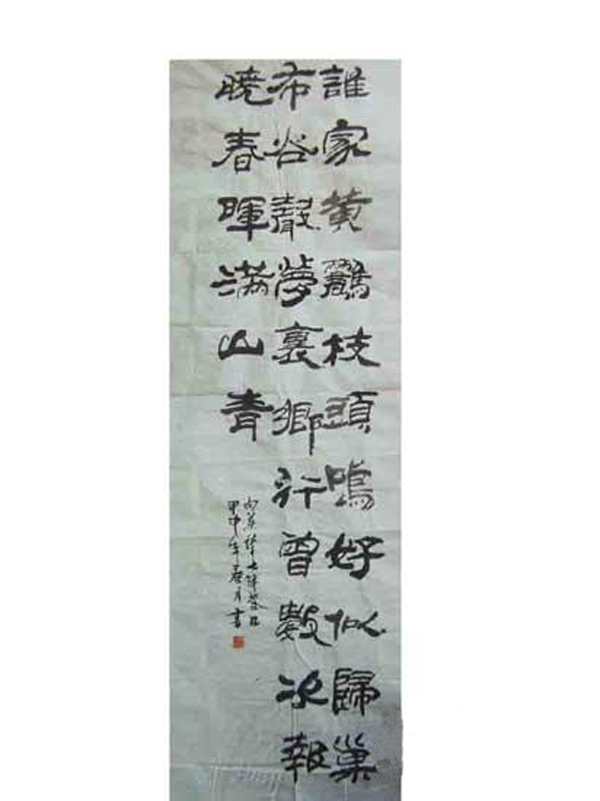 誰家黄鸝枝頭鳴好似歸巢
布谷聲夢裏鄉行曾數次報
曉春暉满山青
甲申年春月書